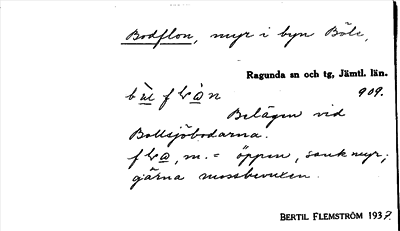 Bodflon, myr i byn Böle.
Ragunda sn och tg, Jämtl. län.
909.
Belägen vid
Bollsjöbodarna.
, m. = öppen, sank myr;
gärna mossbevuxen.
BERTIL FLEMSTRÖM 1937.